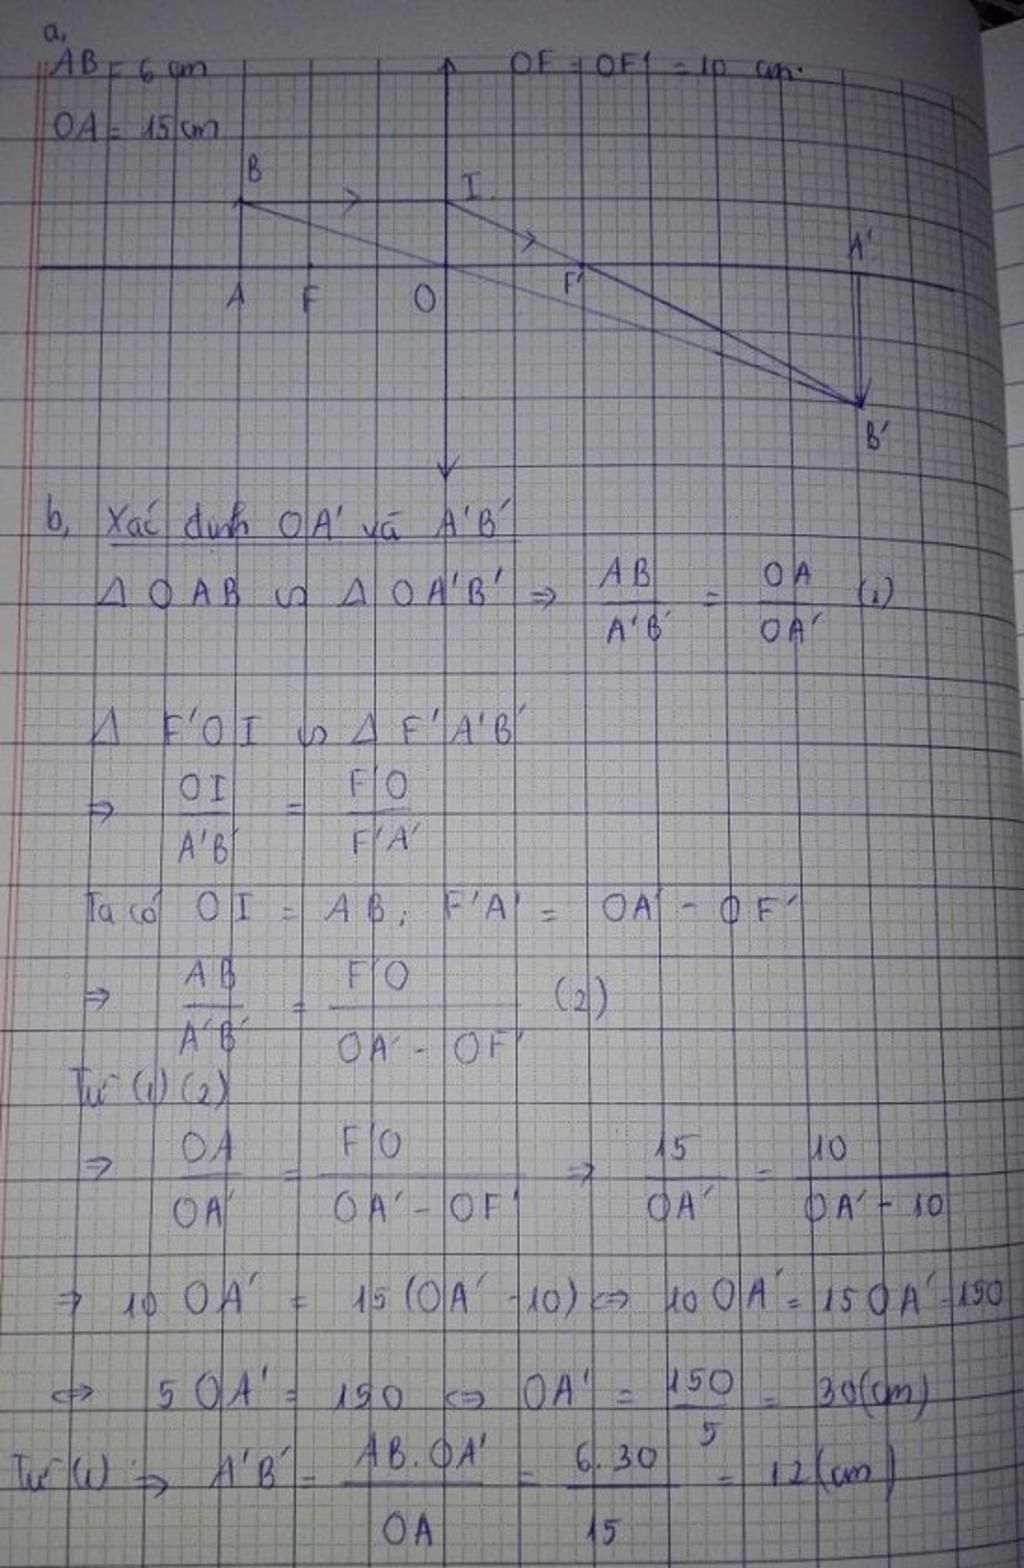 a,
AB = 6 cm OF = OF' = 10 cm.
OA = 15 cm
B I
A'
A F O F'
B'
b, Xác định OA' và A'B'
Δ OAB ∽ Δ OA'B' ⇒ AB/A'B' = OA/OA' (1)
Δ F'OI ∽ Δ F'A'B'
⇒ OI/A'B' = F'O/F'A'
Ta có OI = AB; F'A' = OA' - OF'
⇒ AB/A'B' = F'O/(OA' - OF') (2)
Từ (1) (2)
⇒ OA/OA' = F'O/(OA' - OF') ⇒ 15/OA' = 10/(OA' - 10)
⇒ 10 OA' = 15 (OA' - 10) ⇔ 10 OA' = 15 OA' - 150
⇔ 5 OA' = 150 ⇔ OA' = 150/5 = 30 (cm)
Từ (1) ⇒ A'B' = AB.OA'/OA = 6.30/15 = 12 (cm)